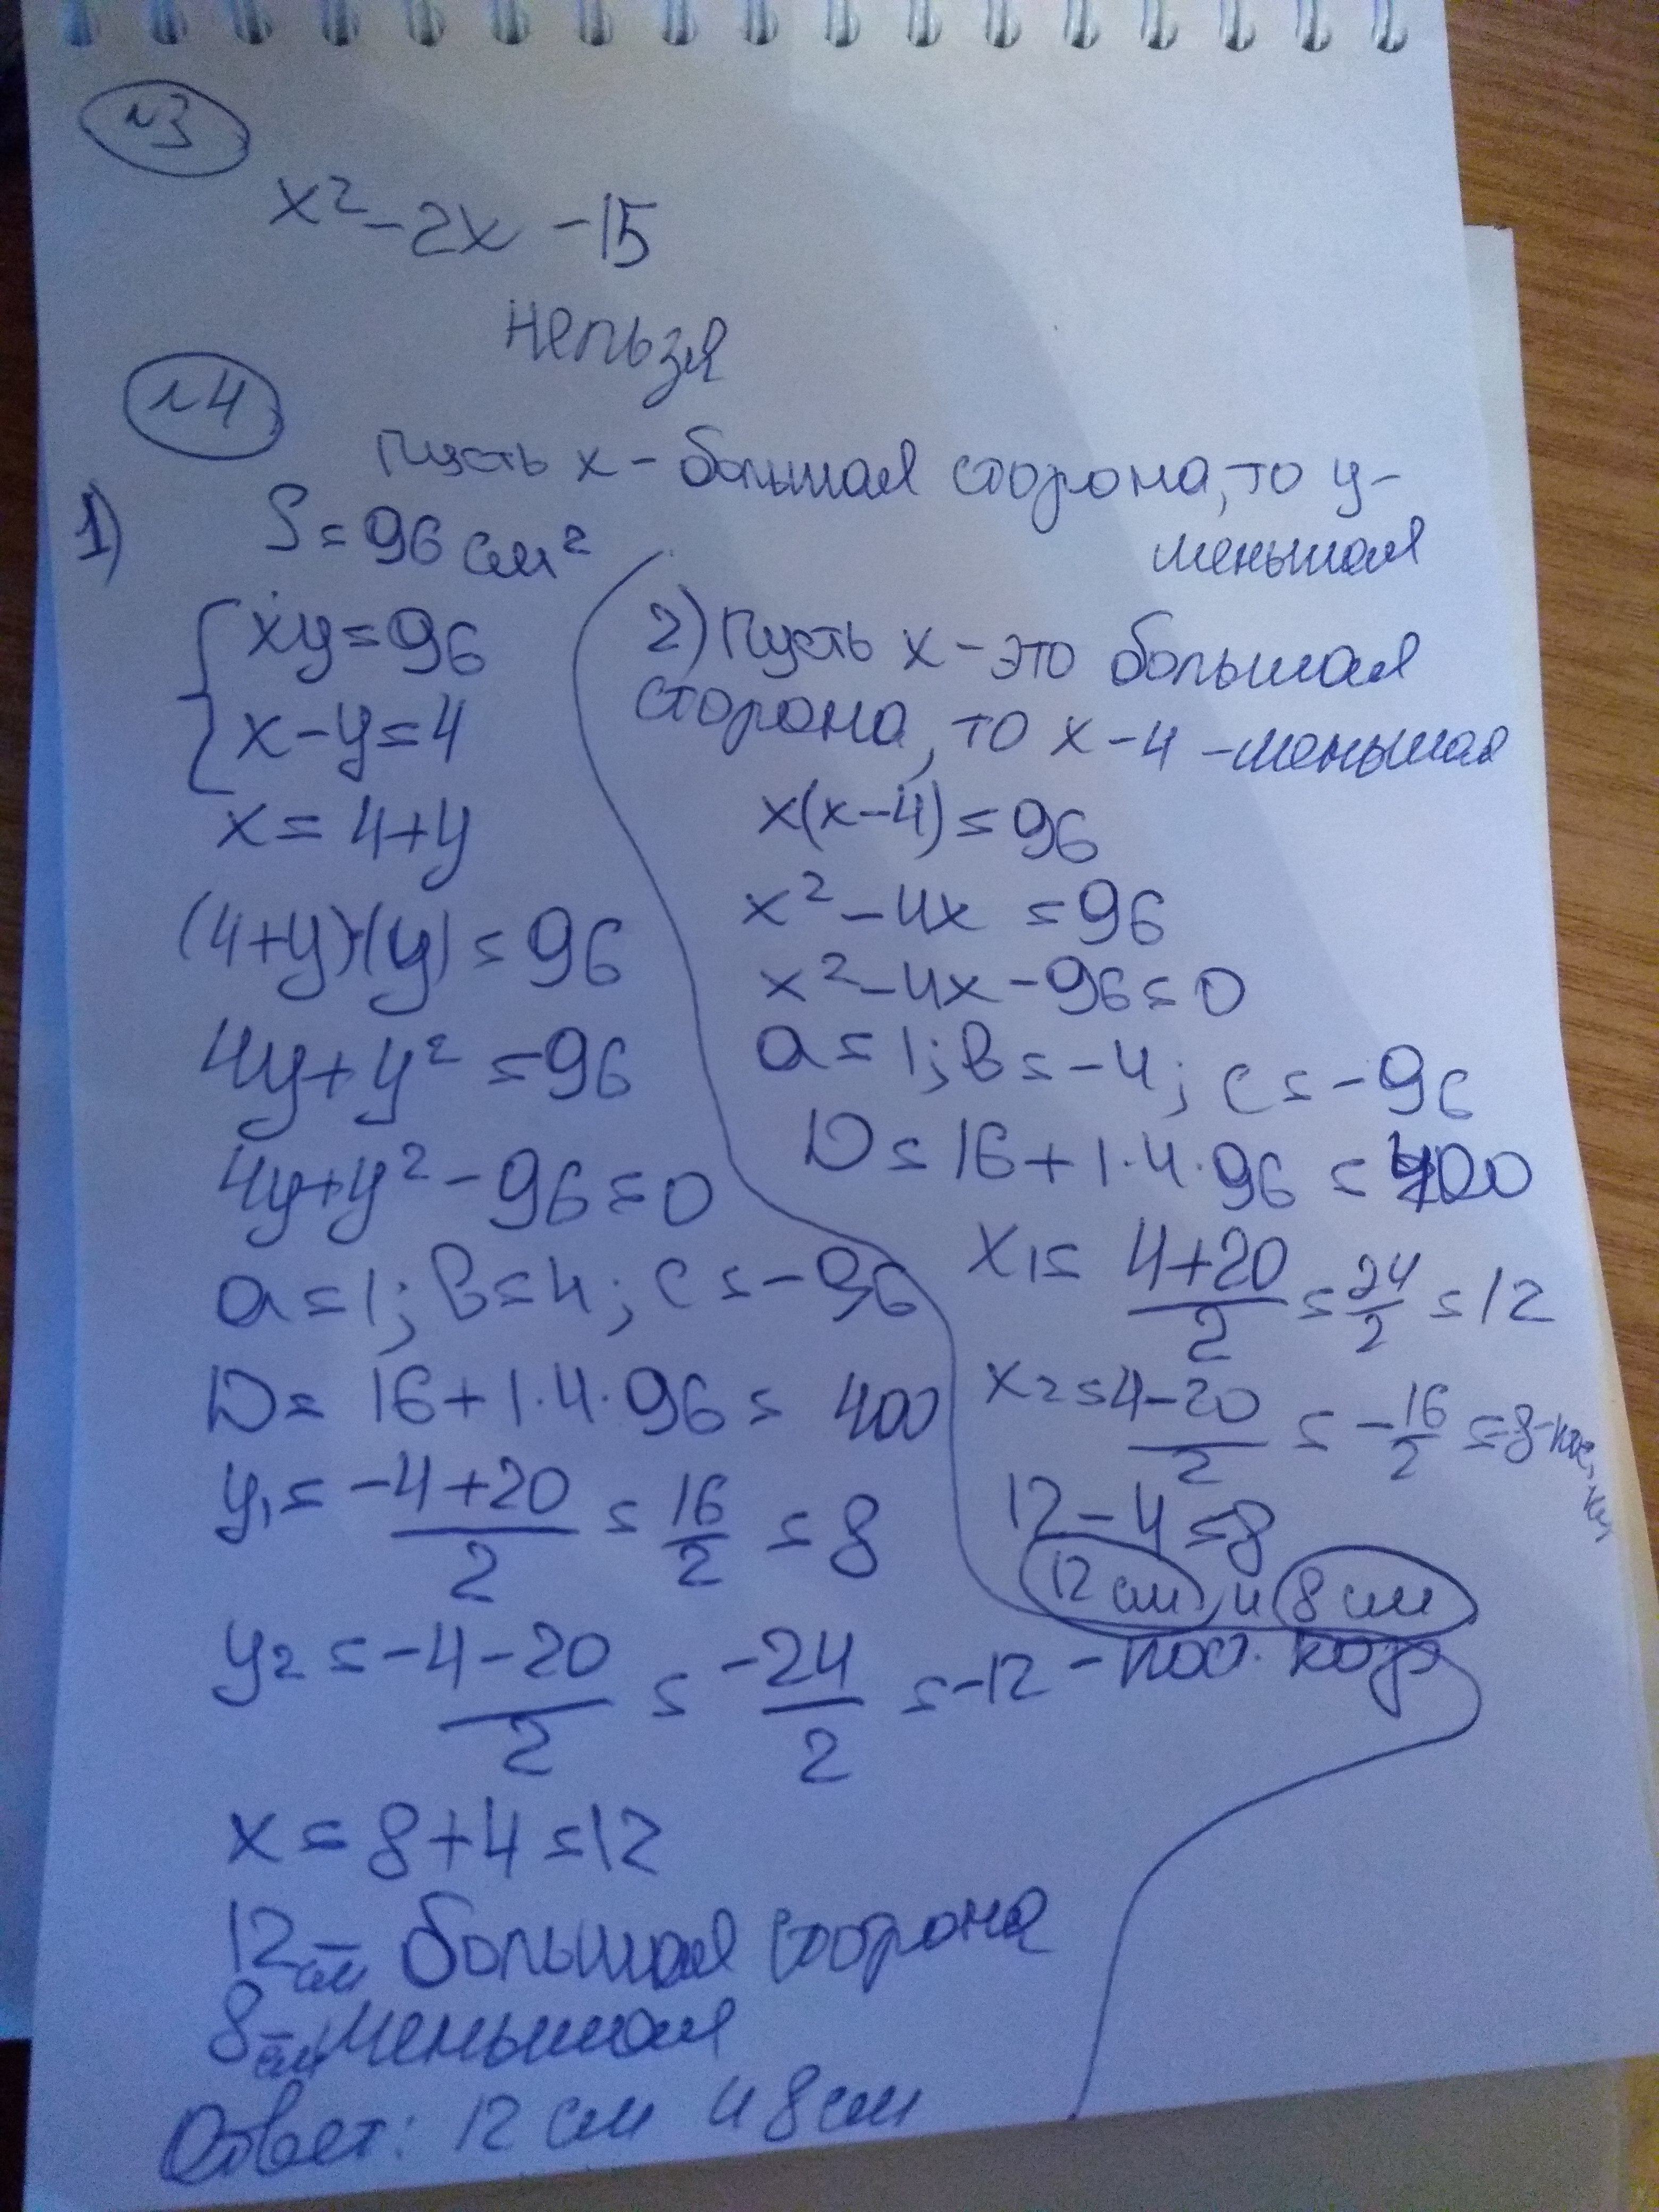 №3
x² - 2x - 15
нельзя
№4
Пусть x - большая сторона, то y -
меньшая
1) S = 96 см²
xy = 96
x - y = 4
x = 4 + y
(4+y)·(y) = 96
4y + y² = 96
4y + y² - 96 = 0
a = 1; b = 4; c = -96
D = 16 + 1·4·96 = 400
y₁ = (-4+20)/2 = 16/2 = 8
y₂ = (-4-20)/2 = -24/2 = -12 - пос. кор
x = 8 + 4 = 12
12 см - большая сторона
8 см - меньшая
Ответ: 12 см и 8 см
2) Пусть x - это большая
сторона, то x - 4 - меньшая
x(x-4) = 96
x² - 4x = 96
x² - 4x - 96 = 0
a = 1; b = -4; c = -96
D = 16 + 1·4·96 = 400
x₁ = (4+20)/2 = 24/2 = 12
x₂ = (4-20)/2 = -16/2 = -8 -
12 - 4 = 8
12 см и 8 см